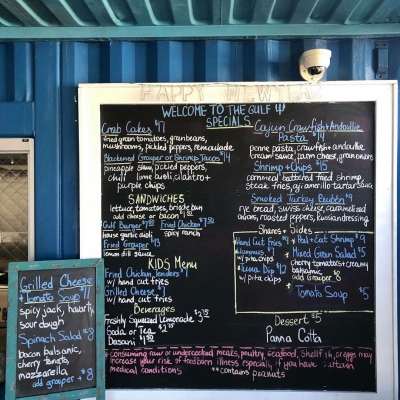 HAPPY NEW YEAR
WELCOME TO THE GULF
SPECIALS
Crab Cakes $17
fried green tomatoes, green beans,
mushrooms, pickled peppers, remoulade
Blackened Grouper or Shrimp Tacos $14
pineapple slaw, pickled peppers,
chili lime aioli, cilantro +
purple chips
SANDWICHES
lettuce, tomatoes, brioche bun
add cheese or bacon
Gulf Burger
house garlic aioli
Fried Chicken
spicy ranch
Fried Grouper $13
lemon dill sauce
KIDS Menu
Fried Chicken Tenders
w/ hand cut fries
Grilled Cheese
w/ hand cut fries
Beverages
Freshly Squeezed Lemonade
Soda or Tea
Dasani
Cajun Crawfish + Andouille
Pasta
penne pasta, crawfish + andouille
cream sauce, parm cheese, green onions
Shrimp + Chips $15
cornmeal battered fried shrimp,
steak fries, aji amarillo tartar sauce
Smoked Turkey Reuben $9
rye bread, swiss cheese, caramelized
onions, roasted peppers, russian dressing
Shares + Sides
Hand Cut Fries
Hummus
w/ pita chips
Tuna Dip $12
w/ pita chips
Peel + Eat Shrimp $9
Mixed Green Salad $5
cherry tomatoes + creamy
balsamic
add grouper
Tomato Soup $5
Dessert $5
Panna Cotta
*consuming raw or undercooked meats, poultry, seafood, shellfish, or eggs may
increase your risk of foodborn illness especially, if you have certain
medical conditions **contains peanuts
Grilled Cheese
+ Tomato Soup $11
spicy jack, havarti,
sour dough
Spinach Salad $8
bacon balsamic,
cherry tomato,
mozzarella
add grouper + $8